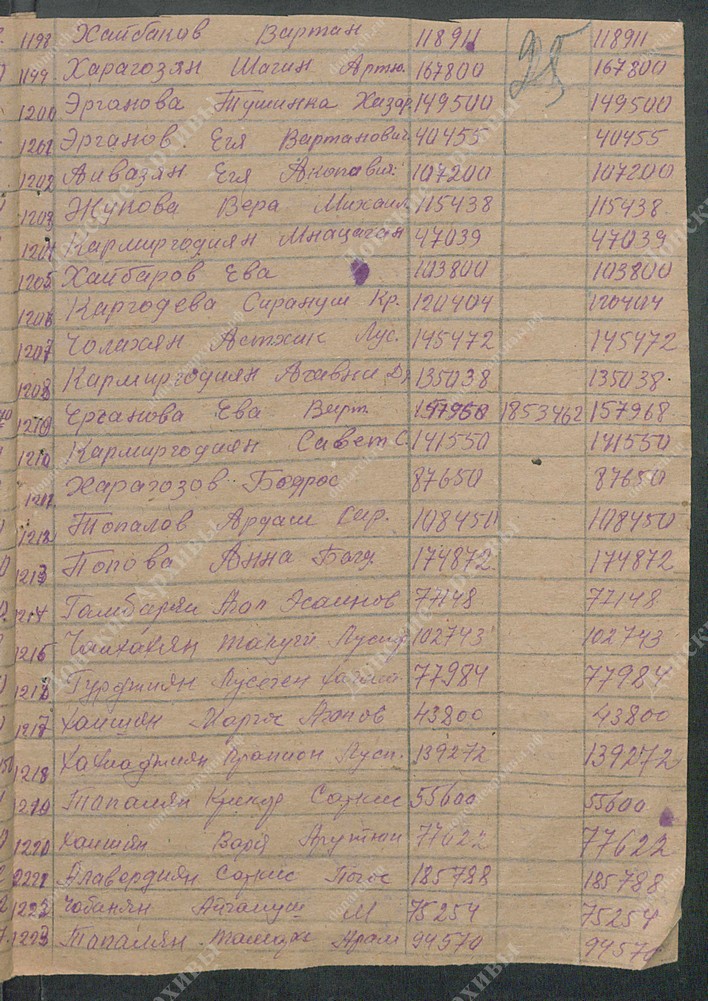 25
1198 Хайбаков Вартан 118911 118911
1199 Харагозян Шагин Артю. 167800 167800
1200 Эрганова Тушинка Хазар. 149500 149500
1201 Эрганов Егя Вартанович 40455 40455
1202 Айвазян Егя Акопавич 107200 107200
1203 Жукова Вера Михаил 115438 115438
1204 Кармиргодиян Мнацаган 47039 47039
1205 Хайбаров Ева 103800 103800
1206 Каргодева Сирануш Кр. 120404 120404
1207 Чолахян Астхик Лус. 145472 145472
1208 Кармиргодиян Агавни 135038 135038
1210 Ерганова Ева Варт. 1853462 157968
1210 Кармиргодиян Савет С. 141550 141550
1211 Харагозов Бодрос 87650 87650
1212 Топалов Ардаш Кир. 108450 108450
1213 Попова Анна Багд. 174872 174872
1214 Гамбарян Акоп 77148 77148
1215 102743 102743
1216 Гурджиян Лусеген 77984 77984
1217 Хаишян Маргос Акопов 43800 43800
1218 Лусп. 139272 139272
1219 Тапалян Саркис 55600 55600
1220 Хаишян Варя Арутюн 77622 77622
1221 Алавердиян Саркис Погос 185788 185788
1222 Чобанян Айгануш М 75254 75254
1223 Тапалян Арам 94570 94570